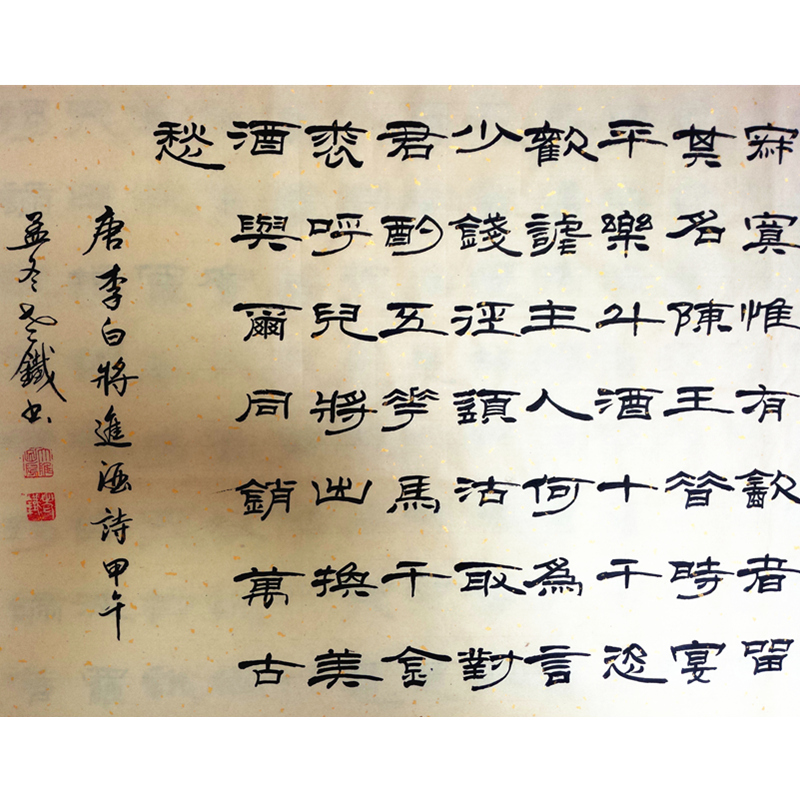 寂寞惟有飲者留
其名陳王昔時宴
平樂斗酒十千恣
歡謔主人何為言
少錢徑須沽取對
君酌五花馬千金
裘呼兒將出換美
酒與爾同銷萬古
愁
唐李白將進酒詩甲午
孟冬老鐵書